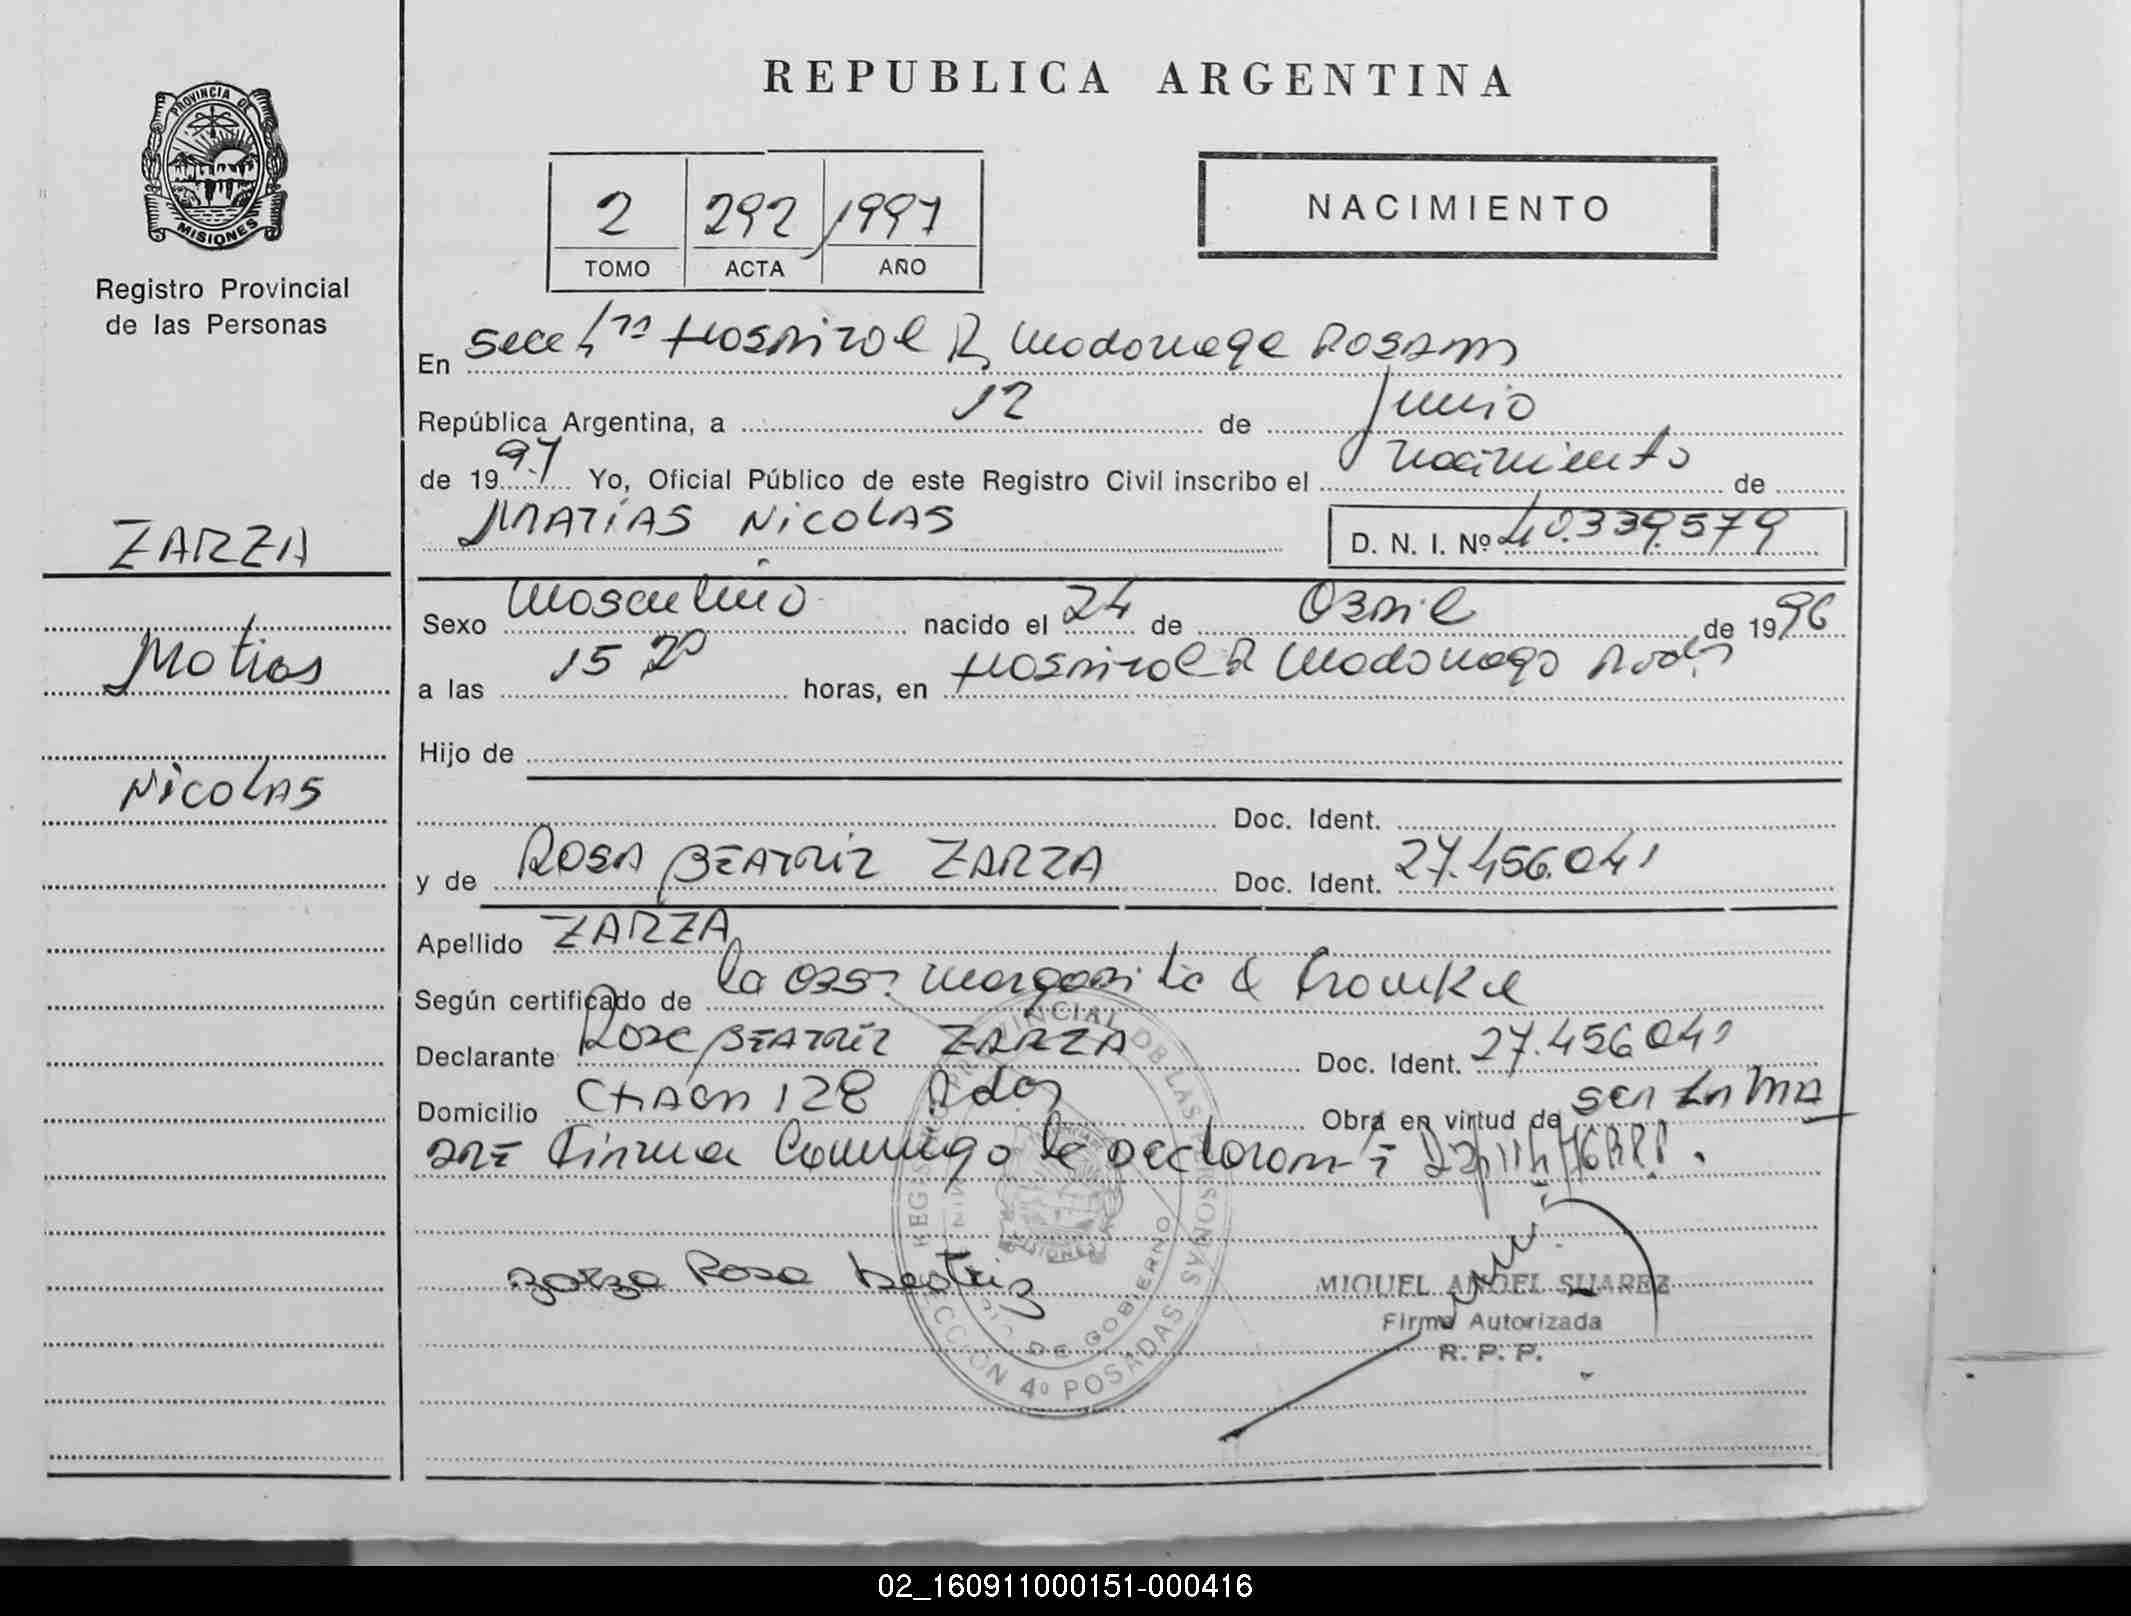 REPUBLICA ARGENTINA
PROVINCIA DE
MISIONES
Registro Provincial
de las Personas
2 292 1997
TOMO ACTA AÑO
NACIMIENTO
En Secc 4ta Hospital R Madariaga Posadas
República Argentina, a 12 de Junio
de 1997 Yo, Oficial Público de este Registro Civil inscribo el nacimiento de
MATÍAS NICOLAS D. N. I. Nº 40.339.579
ZARZA
Matias
Nicolas
Sexo Masculino nacido el 24 de Abril de 1996
a las 15 20 horas, en Hospital R Madariaga Pdas
Hijo de
Doc. Ident.
y de ROSA BEATRIZ ZARZA Doc. Ident. 27.456.041
Apellido ZARZA
Según certificado de la Obst Margarita
Declarante Rosa BEATRIZ ZARZA Doc. Ident. 27.456.041
Domicilio CHACO 128 Pdas Obra en virtud de SER LA MA
DRE Firma Conmigo la Declarante
Zarza Rosa beatriz
REGISTRO PROVINCIAL DE LAS PERSONAS
MINISTERIO DE GOBIERNO
SECCION 4º POSADAS
MIGUEL ANGEL SUAREZ
Firma Autorizada
R. P. P.
02_160911000151-000416